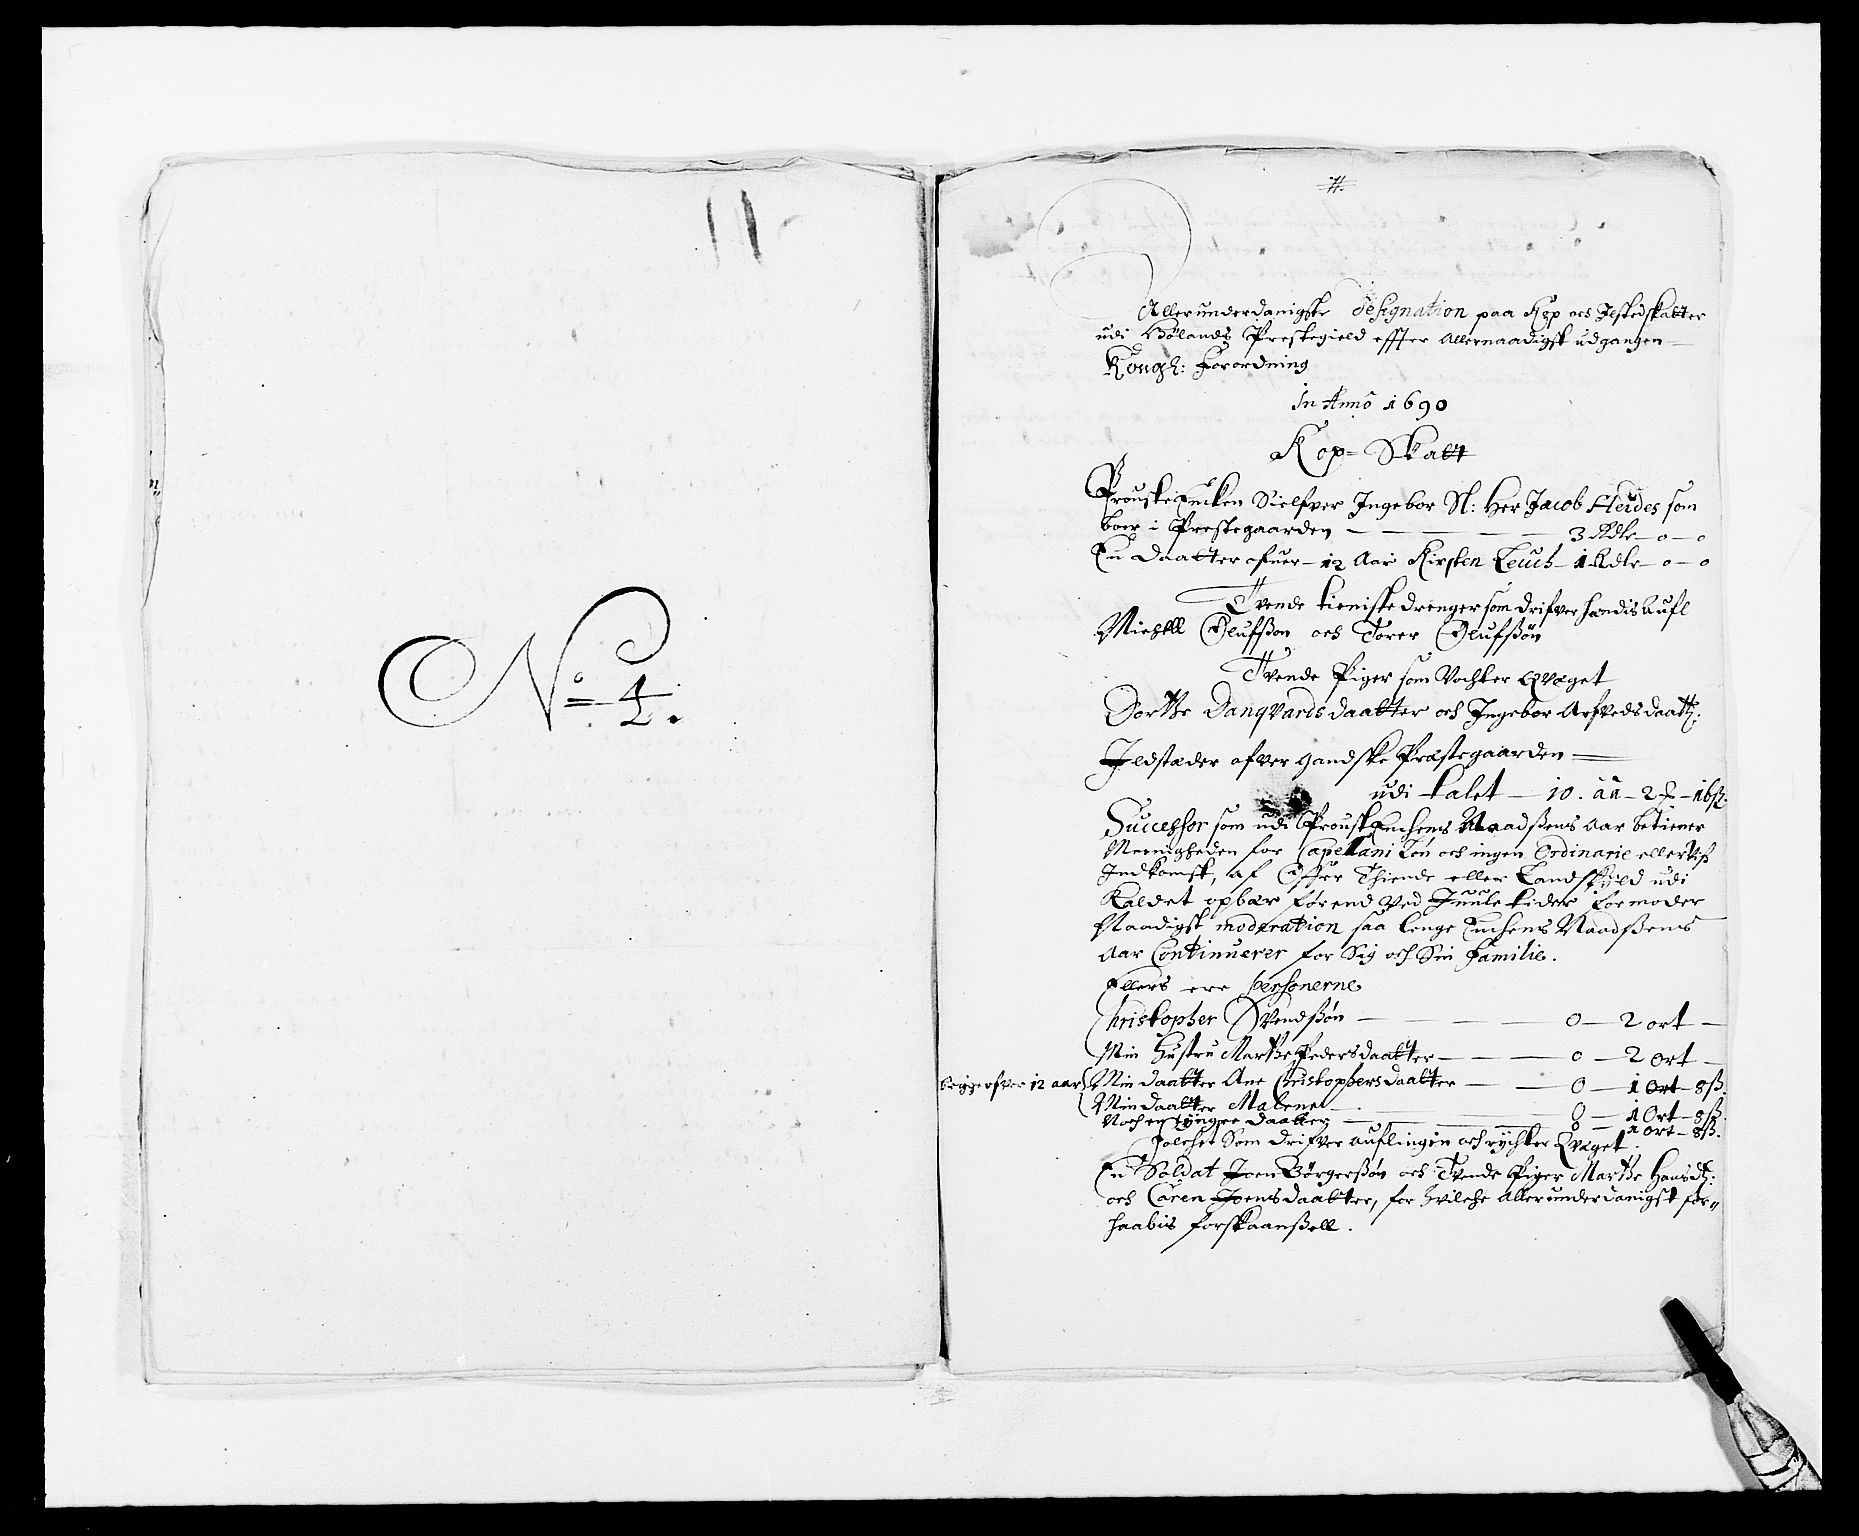 11
No 4.
#.
Allerunderdanigste Designation paa Kop och Ilstedskatter
udi Hølands Prestegield effter Allernaadigst udgangen
Kongl: Forordning
In Anno 1690
Kop= Skatt
Prouste Encken Sielfver Ingebor Sl: Her Jacob Heides som
boer i Prestegaarden — 3 Rdlr — o — o
En daatter ofuer — 12 Aar Kirsten Leuch — 1 Rdlr — o — o
Tvende tieniste drenger som drifver handis Aufl
Michell Olufsßon och Torer Olufsßøn
Tvende Piger som Vochter Qvæget
Dorthe Danqvards daatter och Ingebor Arfveds daattr:
Jldstæder ofver gandske Præstegaarden =
udi talet — 10 . aa — 2 — 16 ß.
Successor som udi Proust Enchens Naadßens Aar betiener
Meenigheden for Capellani Løn och ingen Ordinarie eller Vis
Indkomst, af Offer Thiende eller Landskyld udi
Kaldet opbær førend ved Juule tider formoder
Naadigst moderation saa lenge Enchens Naadßens
Aar Continuerer for Sig och Sin Familie.
Ellers ere personerne
Christopher Svendßøn — 0 — 2 ort —
Min Hustru Marthe Pedersdaatter — 0 — 2 ort —
begge ofver 12 aar { Min daatter Ane Christophersdaatter — 0 — 1 Ort — 8 ß.
Min daatter Malene — 0 — 1 Ort — 8 ß.
Noch en yngre daatter — 0 — 1 ort — 8 ß.
Folchet Som drifver auflingen och rychter Qvæget
En Soldat Joen Börgerßøn och Tvende Piger Marthe Hansdr:
och Caren Joensdaatter, for hvilche Allerunderdanigst for"
haabis forskaanßell.